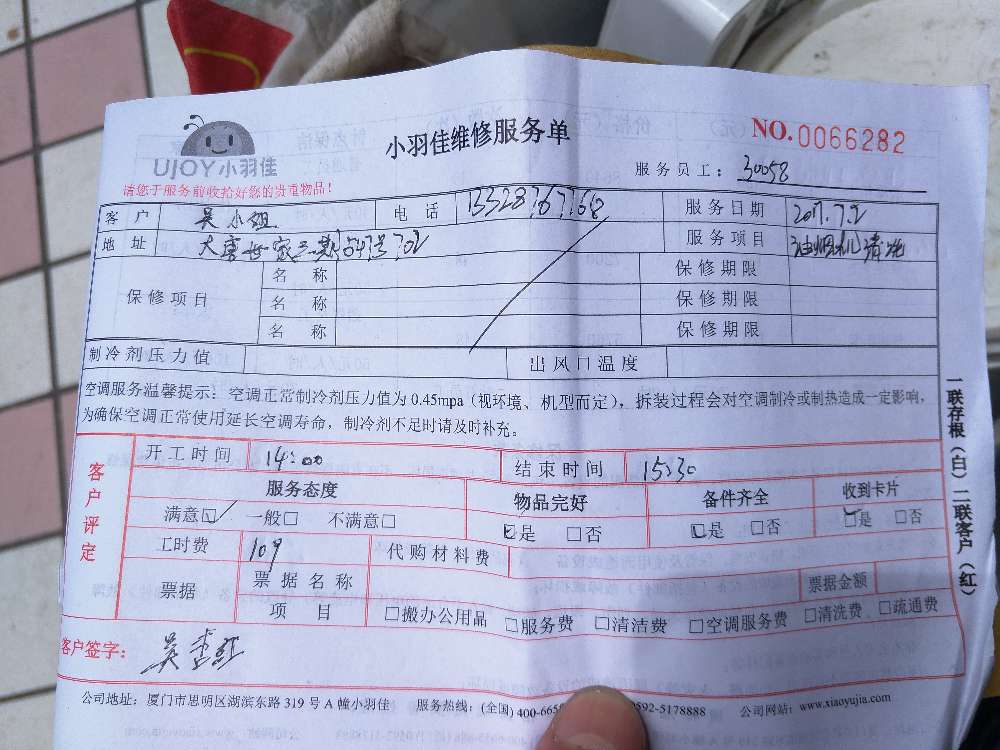 小羽佳维修服务单
NO.0066282
UJOY小羽佳
服务员工：30058
请您于服务前收拾好您的贵重物品！
客户 吴小姐 电话 服务日期 2017.7.2
地址 服务项目 油烟机清洗
保修项目 名称 保修期限
名称 保修期限
名称 保修期限
制冷剂压力值 出风口温度
空调服务温馨提示：空调正常制冷剂压力值为0.45mpa（视环境、机型而定），拆装过程会对空调制冷或制热造成一定影响，
为确保空调正常使用延长空调寿命，制冷剂不足时请及时补充。
客户评定
开工时间 14:00 结束时间 15:30
服务态度 物品完好 备件齐全 收到卡片
满意☑ 一般□ 不满意□ ☑是 □否 ☑是 □否 ☑是 □否
工时费 109 代购材料费
票据 票据名称 票据金额
项目 □搬办公用品 □服务费 □清洁费 □空调服务费 □清洗费 □疏通费
客户签字： 吴
公司地址：厦门市思明区湖滨东路319号A幢小羽佳 服务热线：(全国) 0592-5178888 公司网站：www.xiaoyujia.com
一联存根（白）二联客户（红）